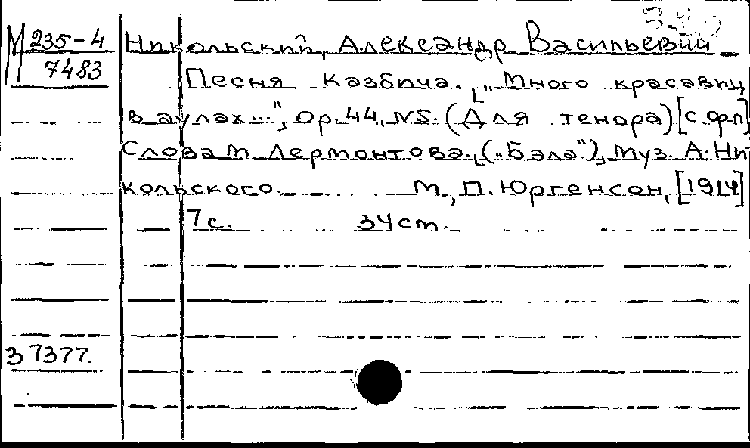 М 235-4 Никольский, Александр Васильевич
7483 Песня Казбича. [„Много красавиц
в аулах..."], Ор. 44, №5. (Для тенора) [с ф-п]
Слова М. Лермонтова. („Бэла"), Муз. А. Ни
кольского. М., П. Юргенсон, [1914]
7 с. 34 ст.
З 7377.